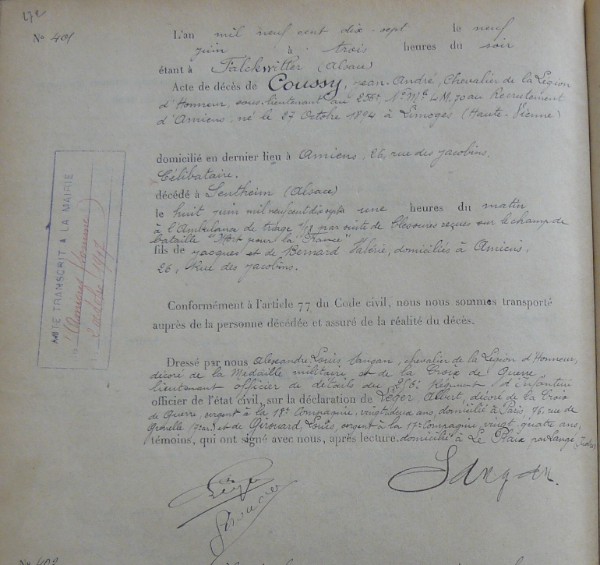 No 401
L'an mil neuf cent dix-sept le neuf
juin à trois heures du soir
étant à Falckwiller (Alsace)
Acte de décès de Coussy, Jean André, Chevalier de la Légion
d'Honneur, sous-lieutenant au Recrutement
d'Amiens, né le 27 Octobre 1894 à Limoges (Haute-Vienne)
domicilié en dernier lieu à Amiens, 26, rue des Jacobins,
Célibataire.
décédé à Sentheim (Alsace)
le huit juin mil neuf cent dix sept à une heures du matin
à l'Ambulance de triage par suite de blessures reçues sur le champ de
bataille "Mort pour la France"
fils de Jacques et de Bernard Valérie, domiciliés à Amiens
26, Rue des Jacobins.
Conformément à l'article 77 du Code civil, nous nous sommes transporté
auprès de la personne décédée et assuré de la réalité du décès.
Dressé par nous Alexandre Louis Sangan, chevalier de la Légion d'Honneur,
décoré de la Médaille militaire et de la Croix de Guerre
lieutenant officier de détails du Régiment d'Infanterie
officier de l'état civil, sur la déclaration de Léger Albert, décoré de la Croix
de Guerre, sergent à la 18e Compagnie, vingt deux ans, domicilié à Paris, rue de
Grenelle et de Girouard Louis, sergent à la Compagnie, vingt quatre ans,
témoins, qui ont signé avec nous, après lecture. domicilié à Le
Sangan
Léger
Girouard
ACTE TRANSCRIT A LA MAIRIE
Amiens (Somme)
No 402